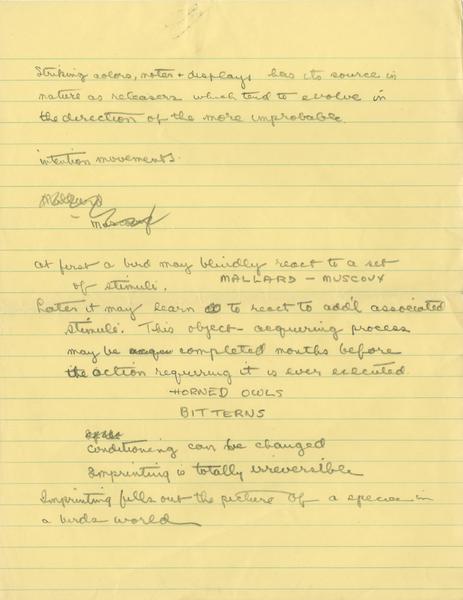 Striking colors, notes + displays has its source in
nature as releasers which tend to evolve in
the direction of the more improbable
intention movements.
Mallards
- Muscovy
at first a bird may blindly react to a set
of stimuli. MALLARD - MUSCOVY
Later it may learn to react to add'l associated
stimuli. This object-acquiring process
may be completed months before
the action requiring it is ever executed.
HORNED OWLS
BITTERNS
Conditioning can be changed
Imprinting is totally irreversible
Imprinting fills out the picture of a specie in
a birds world